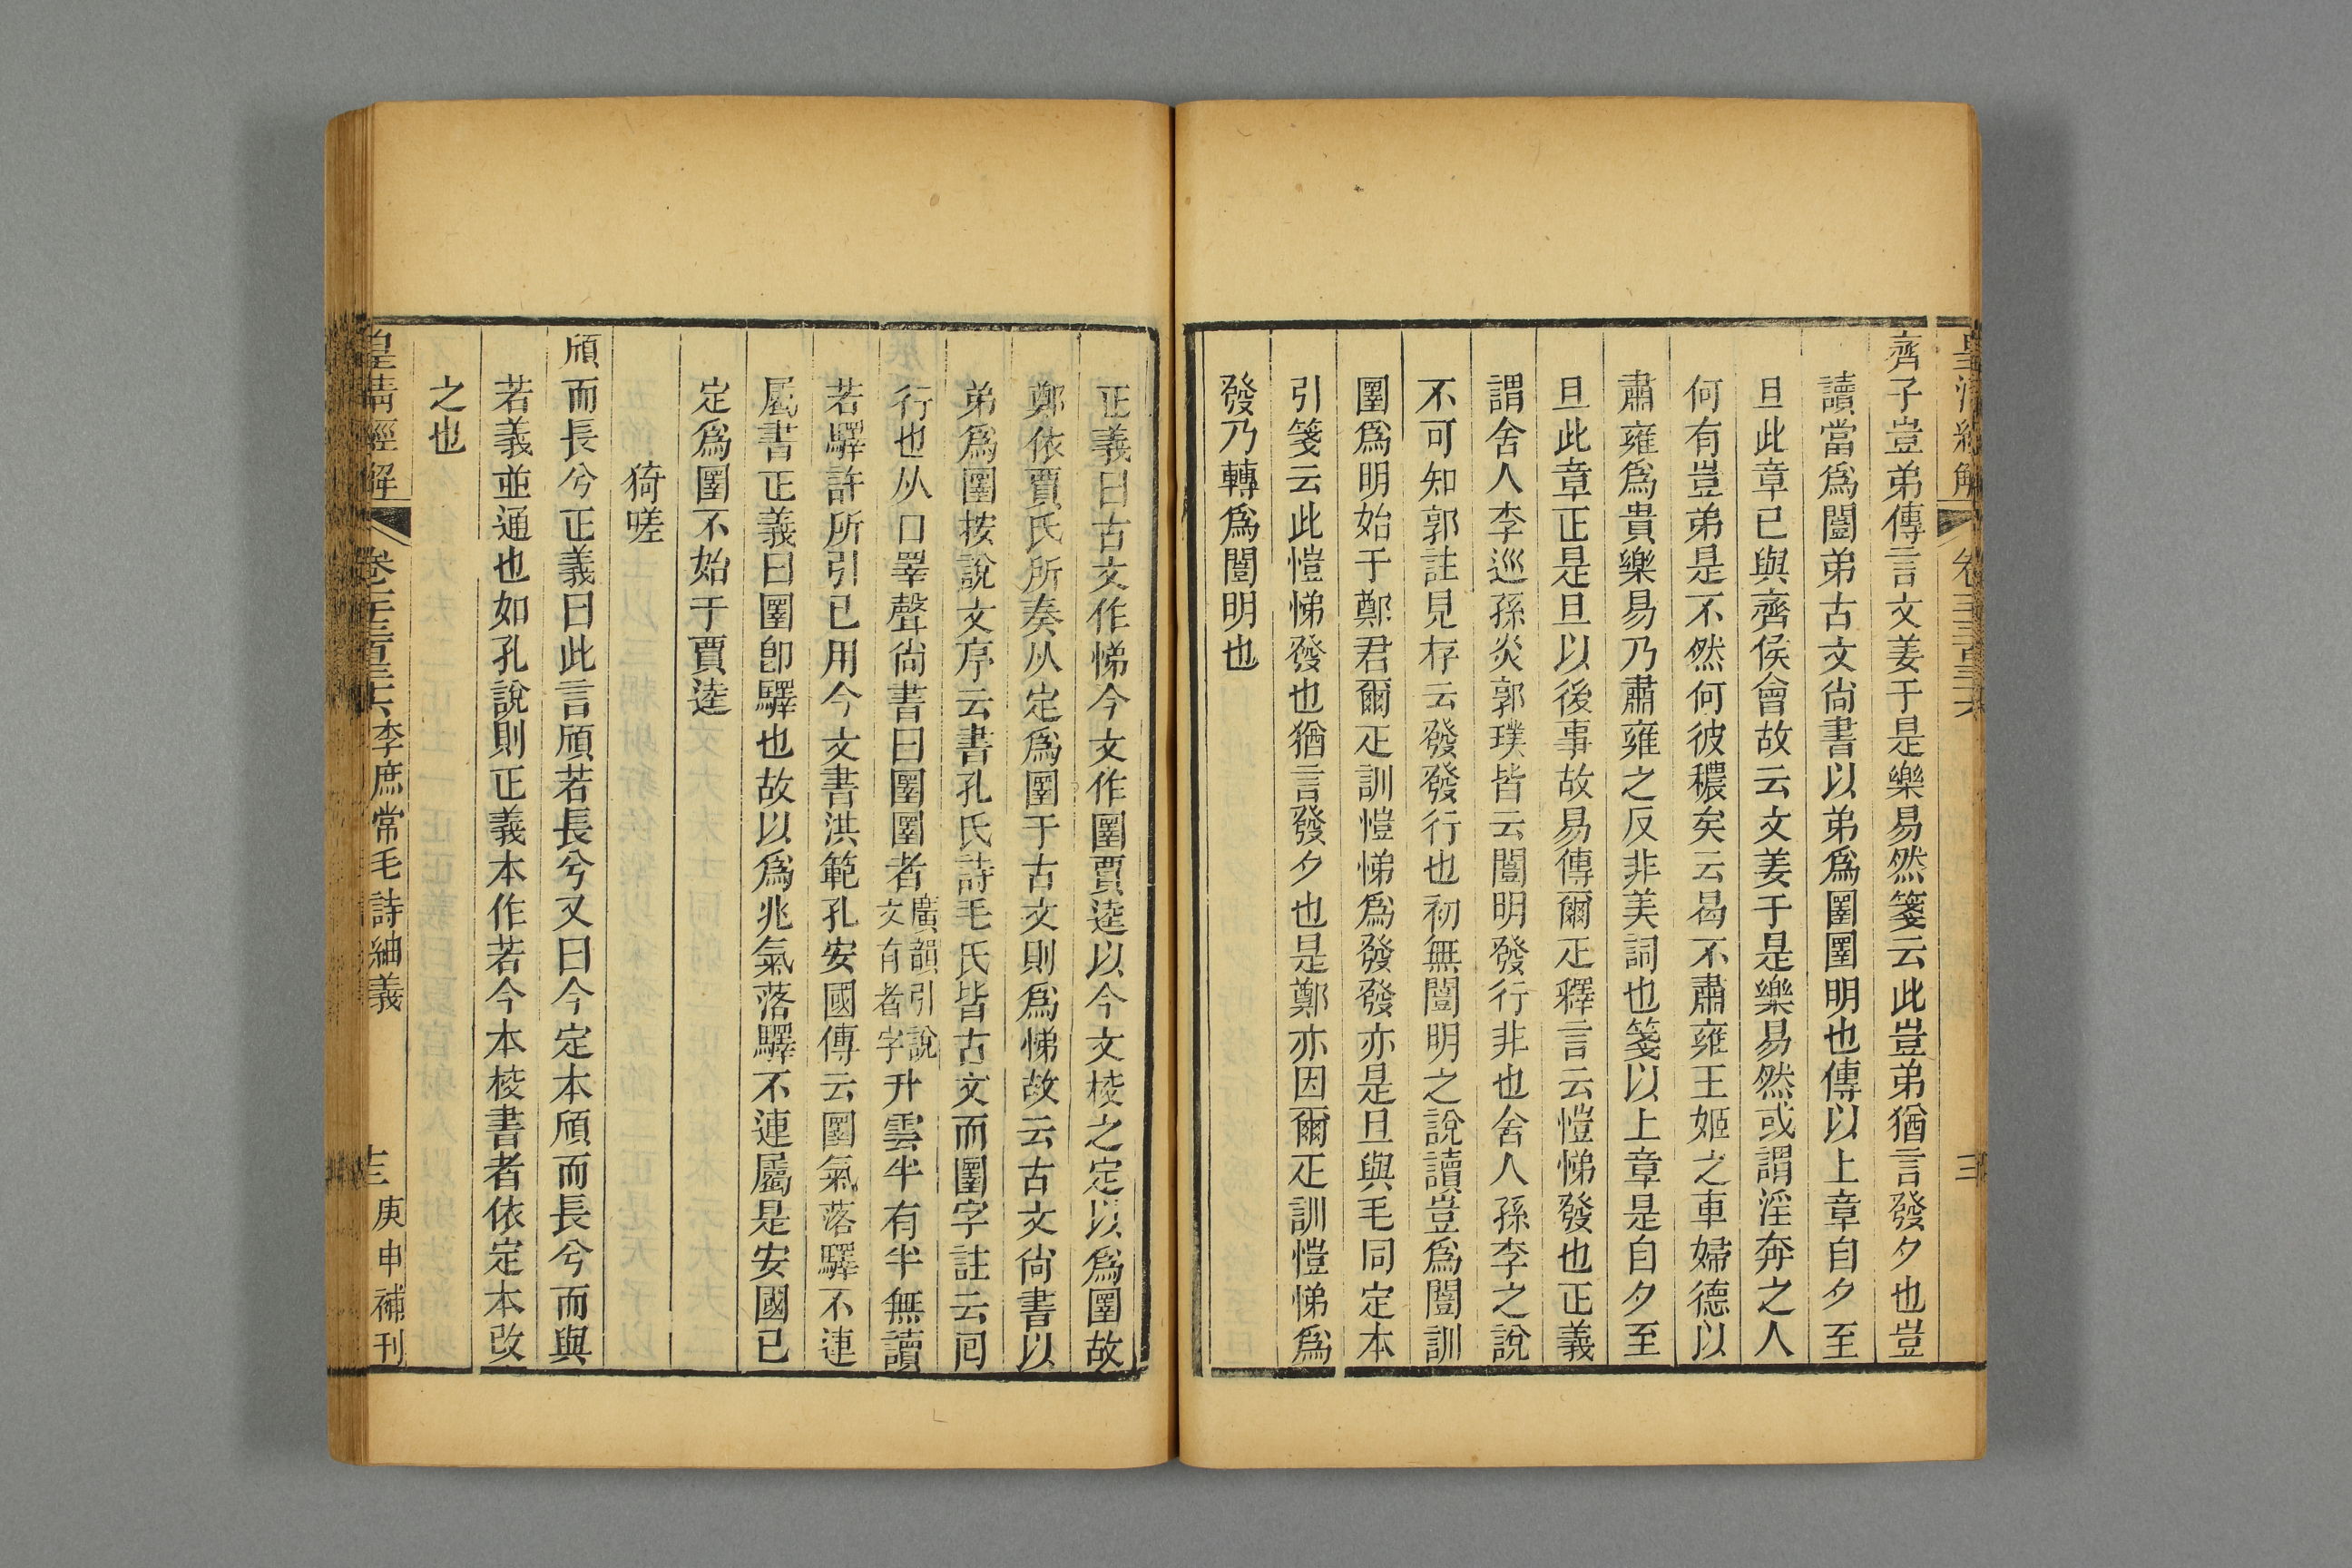 皇清經解 卷一千三百三十六 三
齊子豈弟傳言文姜于是樂易然箋云此豈弟猶言發夕也豈
讀當爲闓弟古文尙書以弟爲圛圛明也傳以上章自夕至
旦此章已與齊侯會故云文姜于是樂易然或謂淫奔之人
何有豈弟是不然何彼穠矣云曷不肅雍王姬之車婦德以
肅雍爲貴樂易乃肅雍之反非美詞也箋以上章是自夕至
旦此章正是旦以後事故易傳爾疋釋言云愷悌發也正義
謂舍人李巡孫炎郭璞皆云闓明發行非也舍人孫李之說
不可知郭註見存云發發行也初無闓明之說讀豈爲闓訓
圛爲明始于鄭君爾疋訓愷悌爲發發亦是旦與毛同定本
引箋云此愷悌發也猶言發夕也是鄭亦因爾疋訓愷悌爲
發乃轉爲闓明也
正義曰古文作悌今文作圛賈逵以今文挍之定以爲圛故
鄭依賈氏所奏从定爲圛于古文則爲悌故云古文尙書以
弟爲圛按說文序云書孔氏詩毛氏皆古文而圛字註云囘
行也从口睪聲尙書曰圛圛者廣韻引說文有者字升雲半有半無讀
若驛許所引已用今文書洪範孔安國傳云圛氣落驛不連
屬書正義曰圛卽驛也故以爲兆氣落驛不連屬是安國已
定爲圛不始于賈逵
猗嗟
頎而長兮正義曰此言頎若長兮又曰今定本頎而長兮而與
若義並通也如孔說則正義本作若今本挍書者依定本改
之也
皇淸經解 李庶常毛詩紬義 庚申補刊